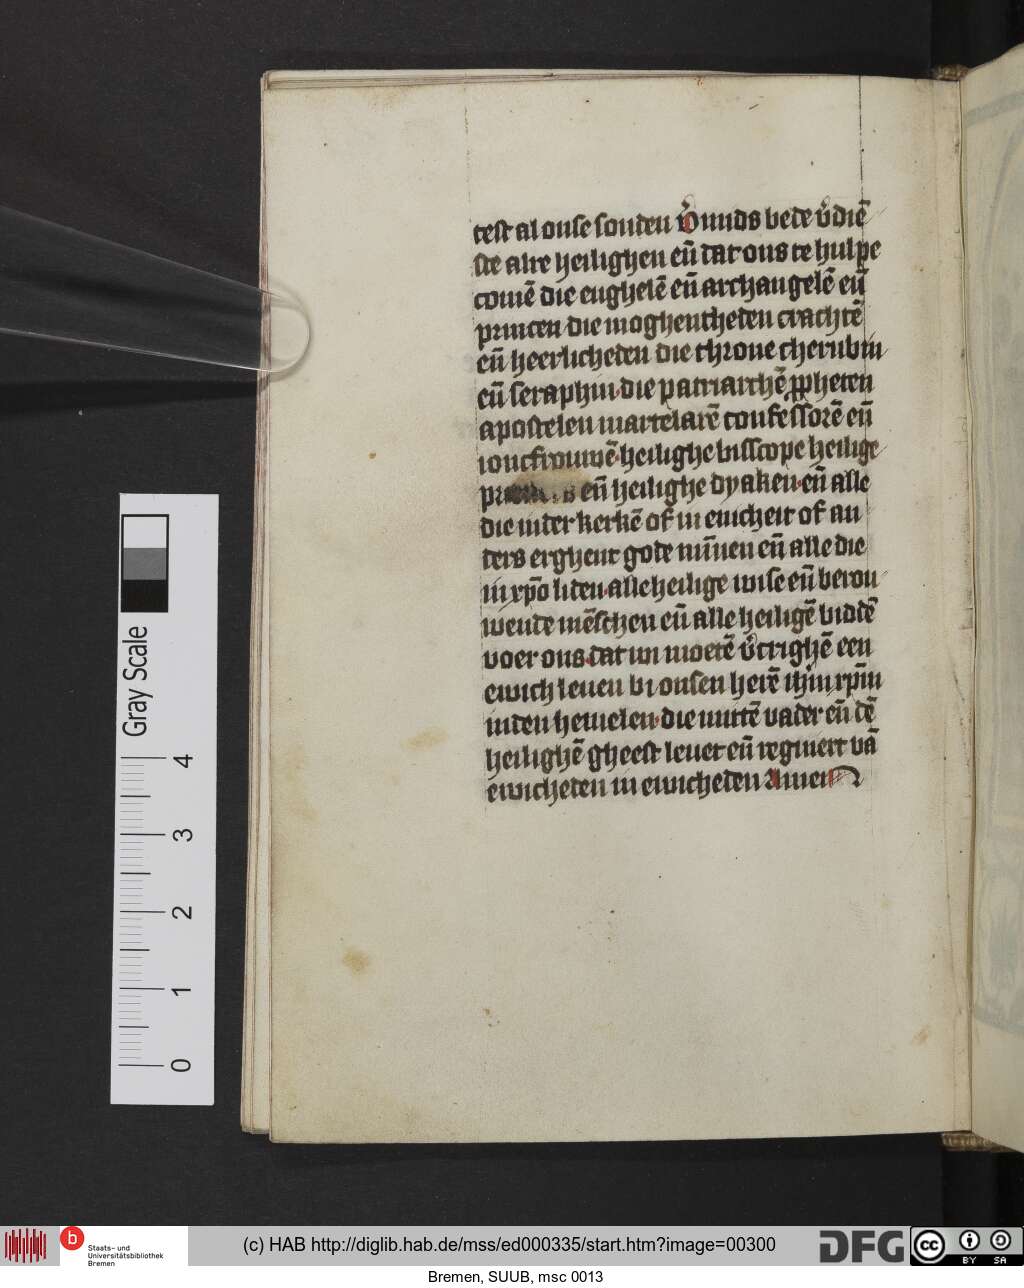 test al onse sonden Ov̄mids bede v̄diē
ste alre heilighen eñ dat ons te hulpe
comē die enghelē eñ archangelē eñ
princen die moghentheden crachtē
eñ heerlicheden die throne cherubin
eñ seraphin·die patriarchē ꝓpheten
apostelen martelarē confessorē eñ
ioncfrouwē·heilighe bisscope heilige
eñ heilighe dyaken·eñ alle
die inder kerkē of in enicheit of an
ders erghent gode minnen eñ alle die
in xp̄o liden·alle heilige wise eñ berou
wende mēschen eñ alle heiligē biddē
voer ons·dat wi moetē v̄crighē een
ewich leuen bi onsen herē ihm̄ xp̄m
inden hemelen·die mittē vader eñ dē
heilighē gheest leuet eñ regniert vā
ewicheden in ewicheden Amen
Gray Scale
4
3
2
1
0
b
Staats- und
Universitätsbibliothek
Bremen
(c) HAB http://diglib.hab.de/mss/ed000335/start.htm?image=00300
DFG
cc
BY SA
Bremen, SUUB, msc 0013